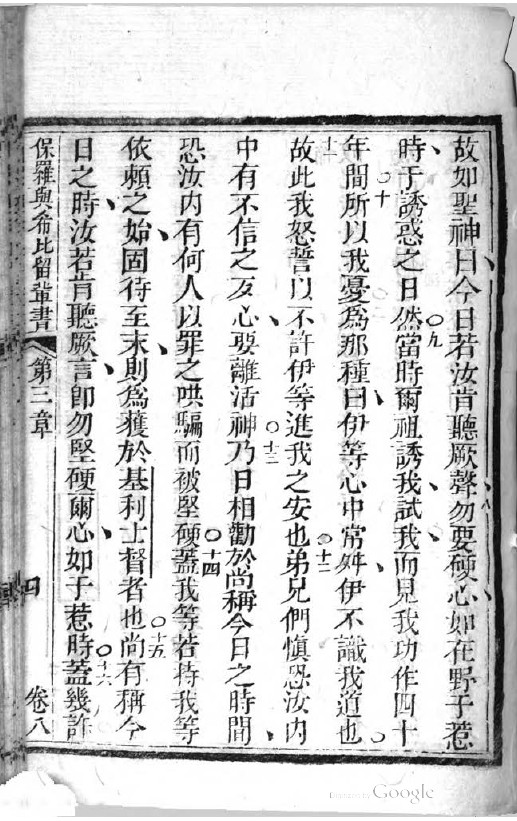 故如聖神曰今日若汝肯聽厥聲勿要硬心如在野于惹
時于誘惑之日○九然當時爾祖誘我試我而見我功作四十
年間○十所以我憂為那種曰伊等心中常舛伊不識我道也
○十一故此我怒誓以不許伊等進我之安也○十二弟兄們慎恐汝內
中有不信之歹心要離活神○十三乃日相勸於尚稱今日之時間
恐汝內有何人以罪之哄騙而被堅硬○十四蓋我等若持我等
依賴之始固待至末則為獲於基利士督者也○十五尚有稱今
日之時汝若肯聽厥言即勿堅硬爾心如于惹時○十六蓋幾許
保羅與希比留輩書 第三章 四 卷八
Google